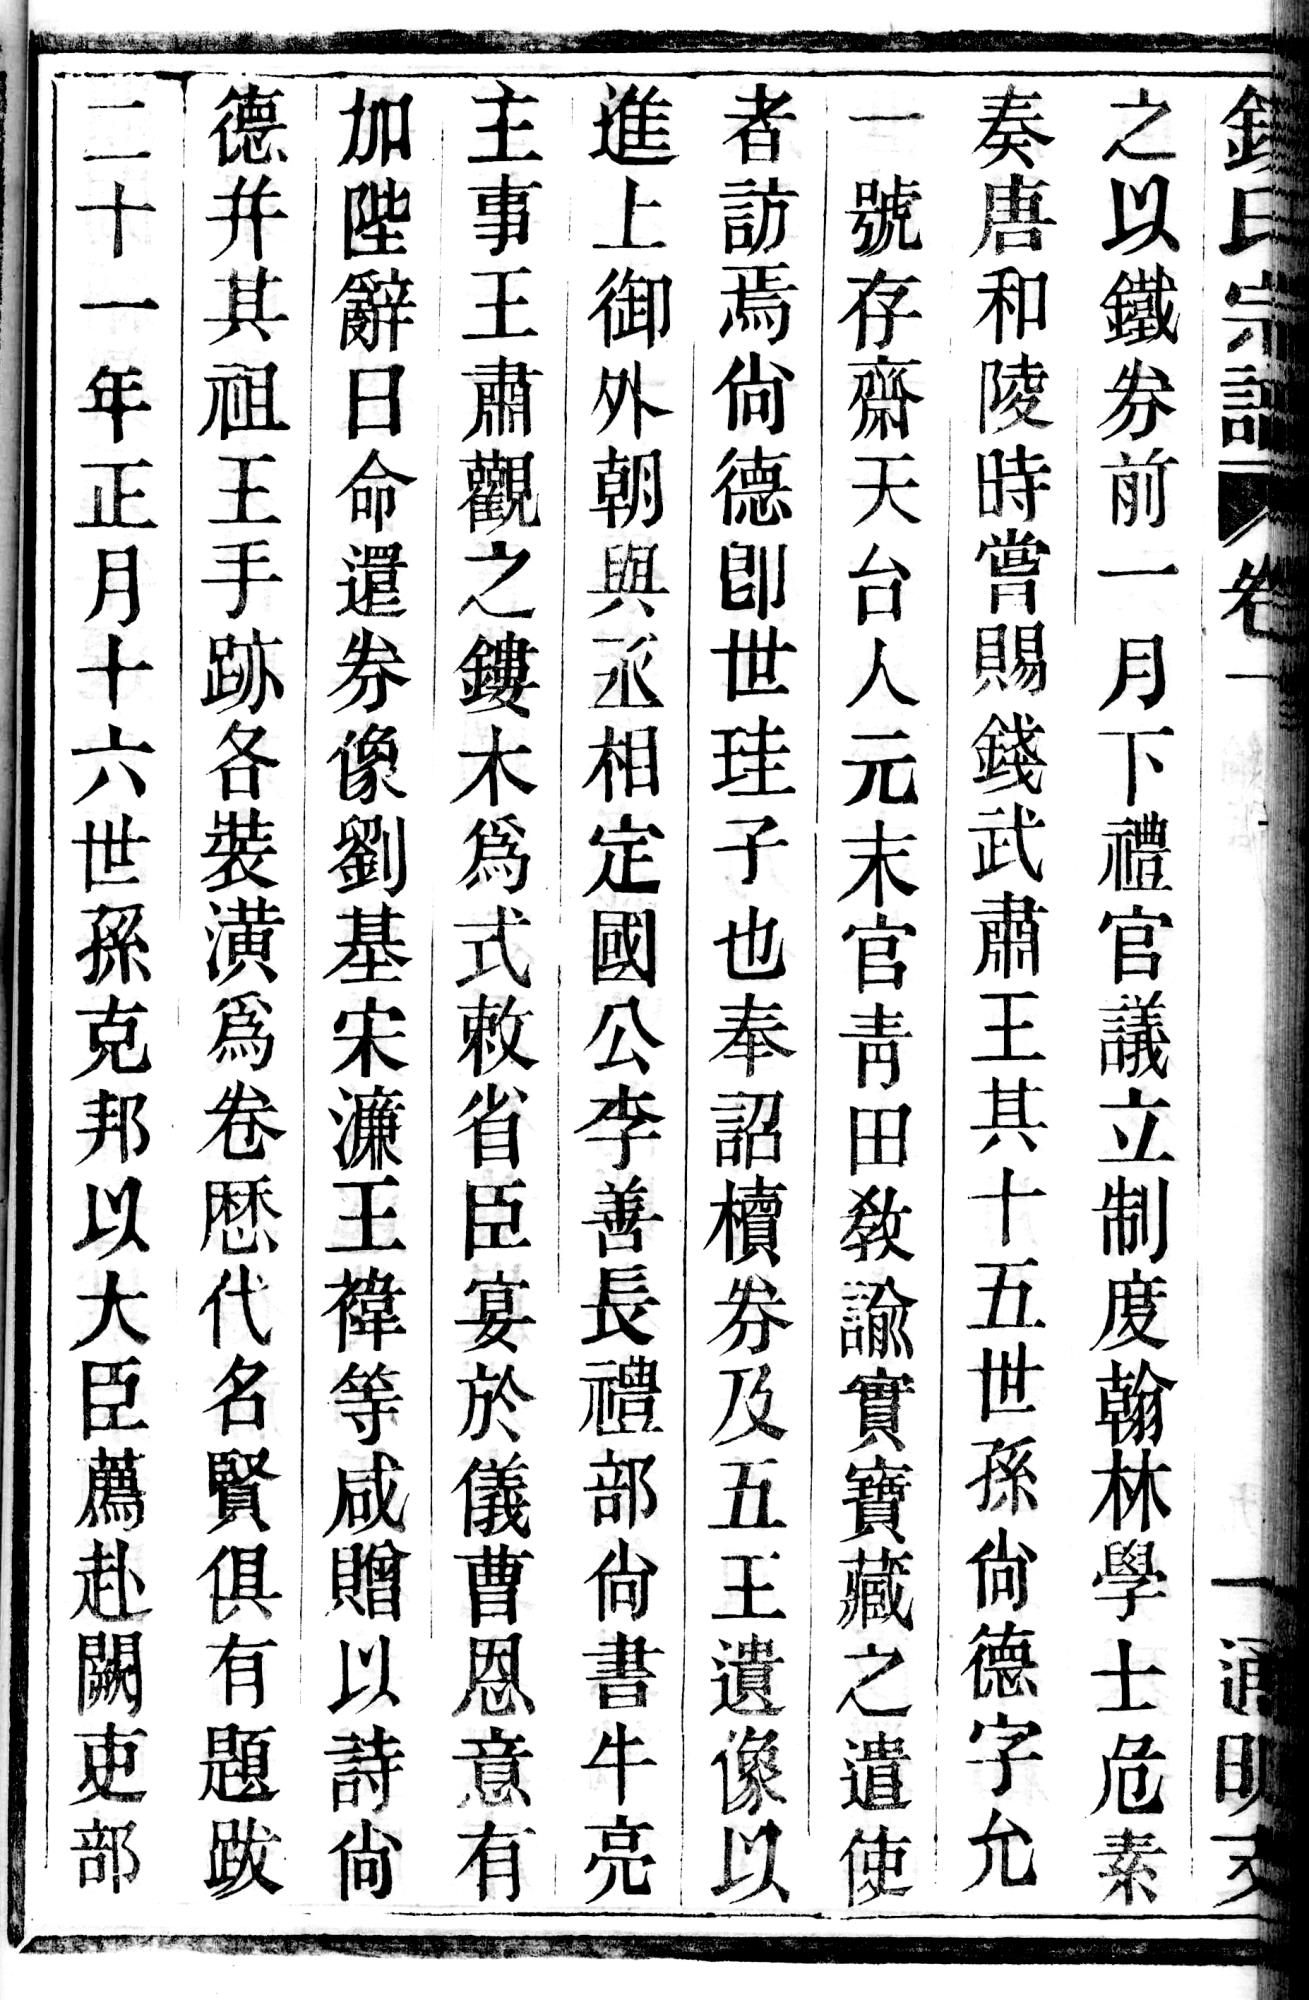 錢氏宗譜 卷一 一 通明
之以鐵券前一月下禮官議立制度翰林學士危素
奏唐和陵時嘗賜錢武肅王其十五世孫尙德字允
一號存齋天台人元末官青田教諭實寶藏之遣使
者訪焉尙德卽世珪子也奉詔櫝券及五王遺像以
進上御外朝與丞相定國公李善長禮部尙書牛亮
主事王肅觀之鏤木爲式敕省臣宴於儀曹恩意有
加陛辭日命還券像劉基宋濂王褘等咸贈以詩尙
德并其祖王手跡各裝潢爲卷歷代名賢俱有題跋
二十一年正月十六世孫克邦以大臣薦赴闕吏部